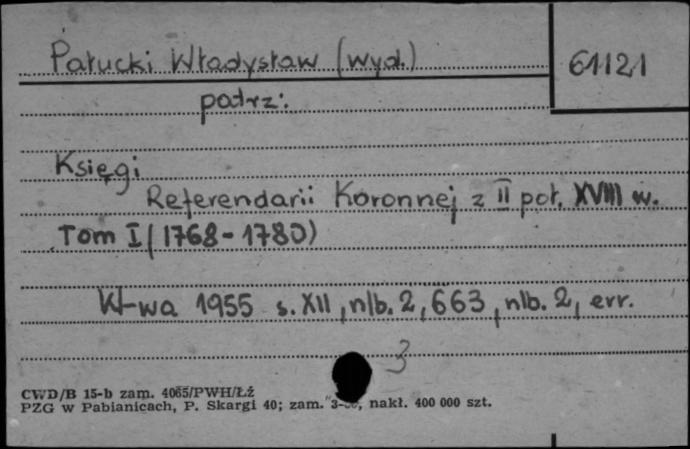 Pałucki Władysław (wyd.)
61121
patrz:
Księgi
Referendarii Koronnej z II poł. XVIII w.
Tom I (1768-1780)
W-wa 1955 s. XII, nlb. 2, 663, nlb. 2, err.
3
CWD/B 15-b zam. 4065/PWH/Łź
PZG w Pabianicach, P. Skargi 40; zam. nakł. 400 000 szt.